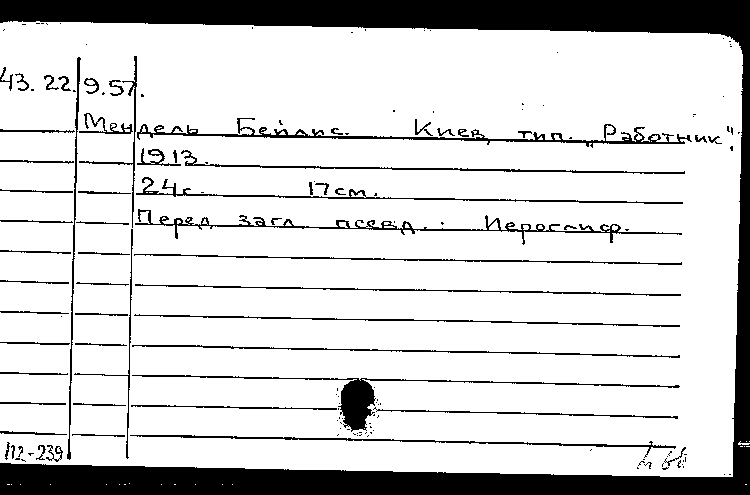 43.22.9.57.
Мендель Бейлис. Киев, тип. „Работник".
1913.
24с. 17см.
Перед загл. псевд.: Иероглиф.
112-239